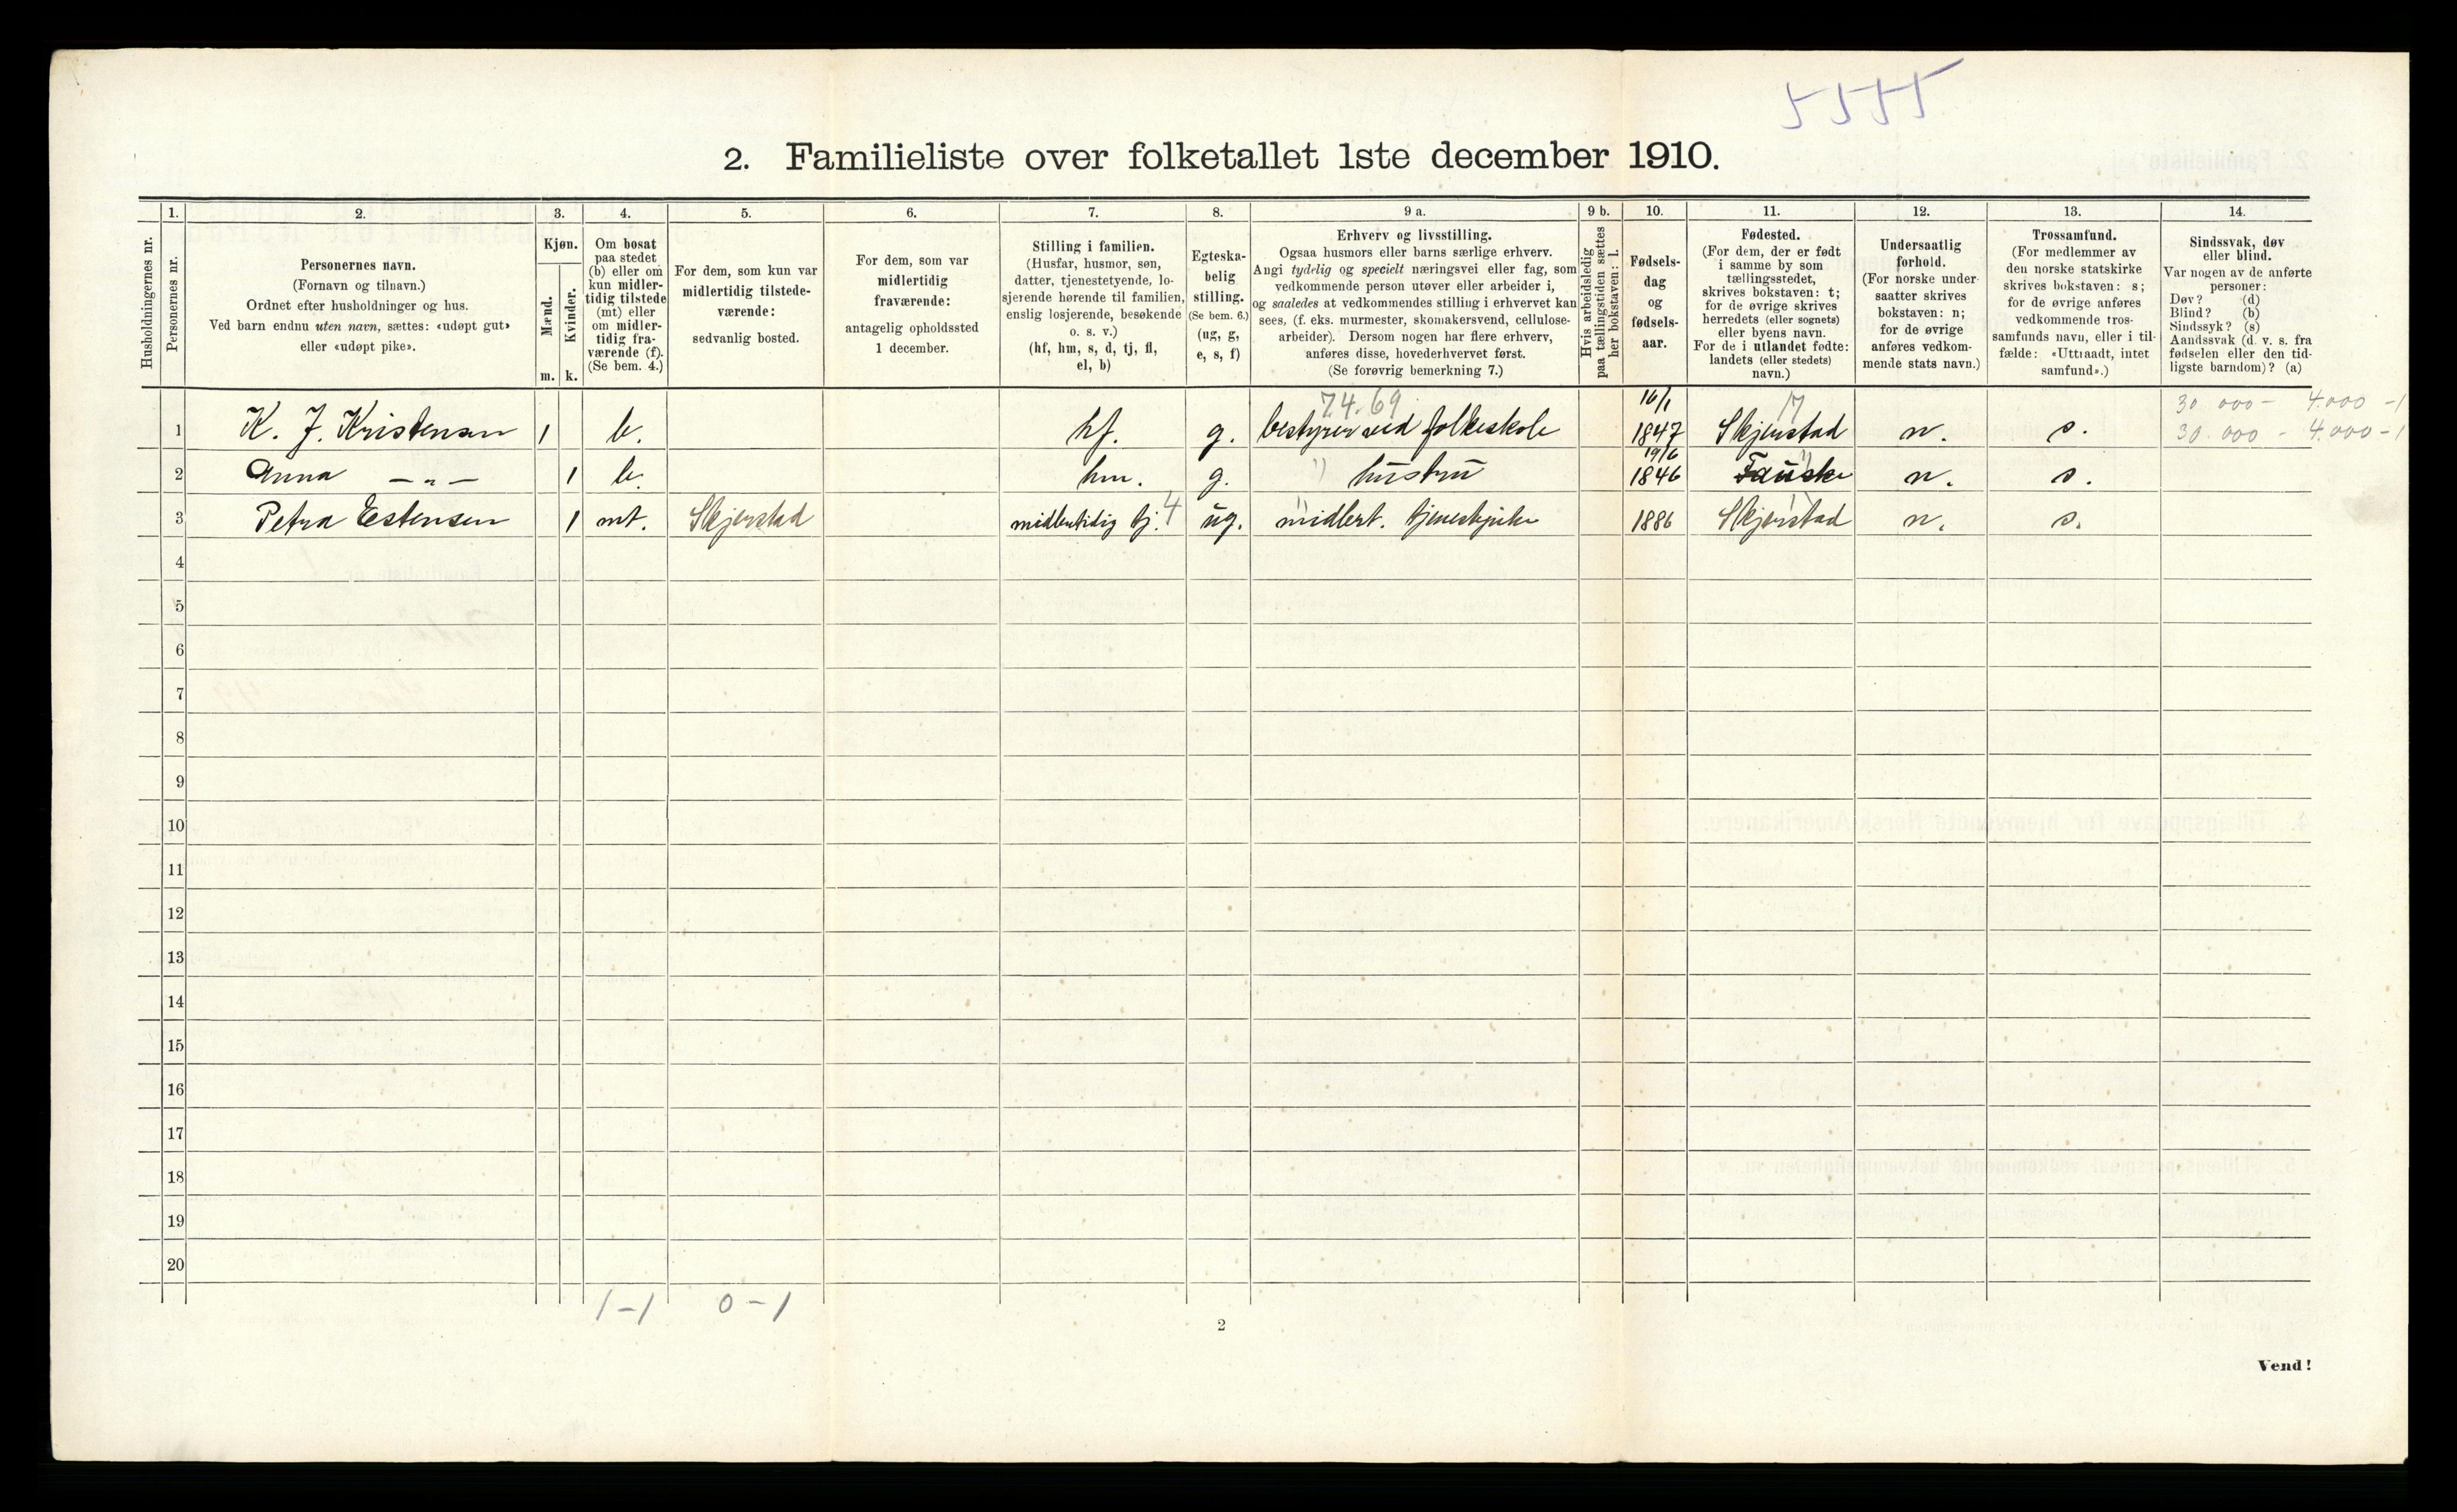 5555
2. Familieliste over folketallet 1ste december 1910.
Husholdningernes nr.
1.
Personernes nr.
2.
Personernes navn.
(Fornavn og tilnavn.)
Ordnet efter husholdninger og hus.
Ved barn endnu uten navn, sættes: «udøpt gut»
eller «udøpt pike».
3.
Kjøn.
Mænd.
Kvinder.
m. k.
4.
Om bosat
paa stedet
(b) eller om
kun midler-
tidig tilstede
(mt) eller
om midler-
tidig fra-
værende (f).
(Se bem. 4.)
5.
For dem, som kun var
midlertidig tilstede-
værende:
sedvanlig bosted.
6.
For dem, som var
midlertidig
fraværende:
antagelig opholdssted
1 december.
7.
Stilling i familien.
(Husfar, husmor, søn,
datter, tjenestetyende, lo-
sjerende hørende til familien,
enslig losjerende, besøkende
o. s. v.)
(hf, hm, s, d, tj, fl,
el, b)
8.
Egteska-
belig
stilling.
(Se bem. 6.)
(ug, g,
e, s, f)
9 a.
Erhverv og livsstilling.
Ogsaa husmors eller barns særlige erhverv.
Angi tydelig og specielt næringsvei eller fag, som
vedkommende person utøver eller arbeider i,
og saaledes at vedkommendes stilling i erhvervet kan
sees, (f. eks. murmester, skomakersvend, cellulose-
arbeider). Dersom nogen har flere erhverv,
anføres disse, hovederhvervet først.
(Se forøvrig bemerkning 7.)
9 b.
Hvis arbeidsledig
paa tællingstiden sættes
her bokstaven: l.
10.
Fødsels-
dag
og
fødsels-
aar.
11.
Fødested.
(For dem, der er født
i samme by som
tællingsstedet,
skrives bokstaven: t;
for de øvrige skrives
herredets (eller sognets)
eller byens navn.
For de i utlandet fødte:
landets (eller stedets)
navn.)
12.
Undersaatlig
forhold.
(For norske under-
saatter skrives
bokstaven: n;
for de øvrige
anføres vedkom-
mende stats navn.)
13.
Trossamfund.
(For medlemmer av
den norske statskirke
skrives bokstaven: s;
for de øvrige anføres
vedkommende tros-
samfunds navn, eller i til-
fælde: «Uttraadt, intet
samfund».)
14.
Sindssvak, døv
eller blind.
Var nogen av de anførte
personer:
Døv? (d)
Blind? (b)
Sindssyk? (s)
Aandssvak (d. v. s. fra
fødselen eller den tid-
ligste barndom)? (a)
74.69 16/1 17 30 000 - 4.000 - 1
1 K. J. Kristensen 1 b. hf. g. bestyrer ved folkeskole 1847 Skjerstad n. s. 30.000 - 4.000 - 1
19/6
2 Anna — „ — 1 b. hm. g. hustru 1846 Fauske n. s.
3 Petra Estensen 1 mt. Skjerstad midlertidig tj. 4 ug. midlert. tjenestpike 1886 Skjerstad n. s.
4
5
6
7
8
9
10
11
12
13
14
15
16
17
18
19
20
1-1 0-1
2
Vend!